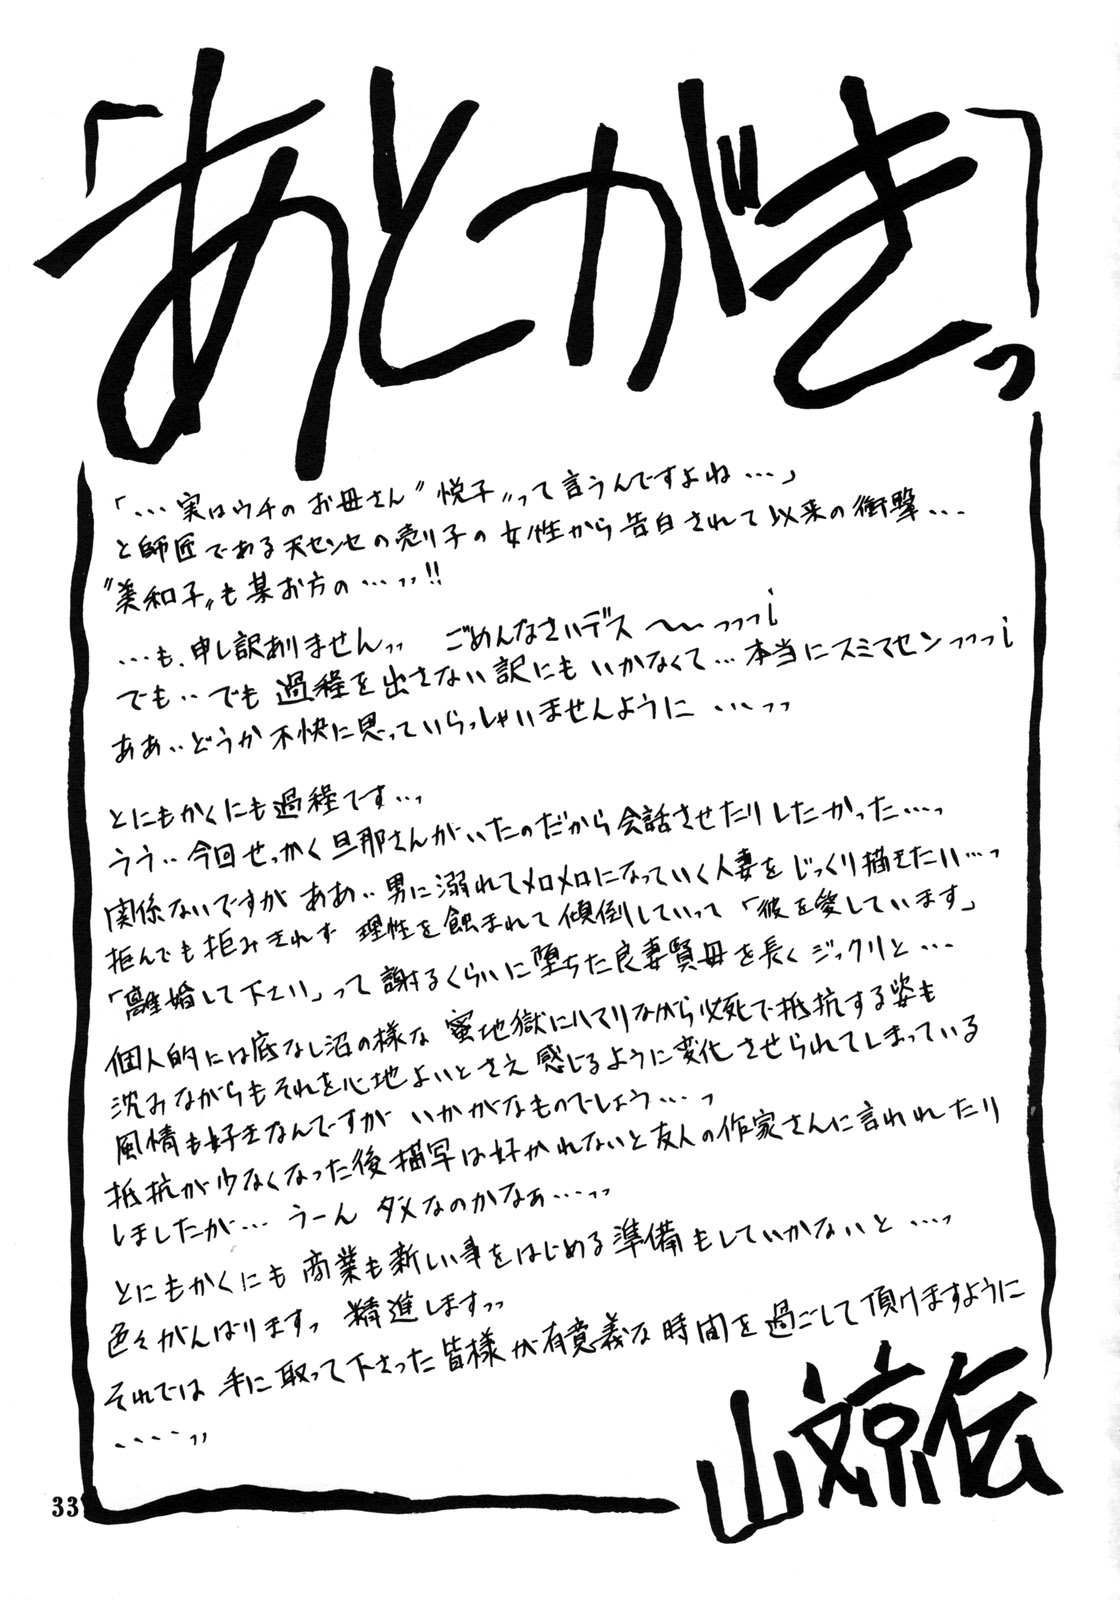 「あとがきっ」
「…実はウチのお母さん〝悦子〟って言うんですよね…」
と師匠である天センセの売り子の女性から告白されて以来の衝撃…
〝美和子〟も某お方の…ッッ!!
…も、申し訳ありませんッッ ごめんなさいデス〜〜ッっっi
でも‥でも過程を出さない訳にもいかなくて…本当にスミマセンッっっi
ああ‥どうか不快に思っていらっしゃいませんように…ッッ
とにもかくにも過程です…っ
うう‥今回せっかく旦那さんがいたのだから会話させたりしたかった…っ
関係ないですがああ‥男に溺れてメロメロになっていく人妻をじっくり描きたい…っ
拒んでも拒みきれず理性を蝕まれて傾倒していって「彼を愛しています」
「離婚して下さい」って謝るくらいに堕ちた良妻賢母を長くジックリと…
個人的には底なし沼の様な蜜地獄にハマりながら必死で抵抗する姿も
沈みながらもそれを心地よいとさえ感じるように変化させられてしまっている
風情も好きなんですがいかがなものでしょう…っ
抵抗が少なくなった後描写は好かれないと友人の作家さんに言われたり
しましたが…うーんダメなのかなぁ…ッッ
とにもかくにも商業も新しい事をはじめる準備もしていかないと…っ
色々がんばりますっ 精進しますッッ
それでは手に取って下さった皆様が有意義な時間を過ごして頂けますように
‥‥ッッ
山文京伝
33